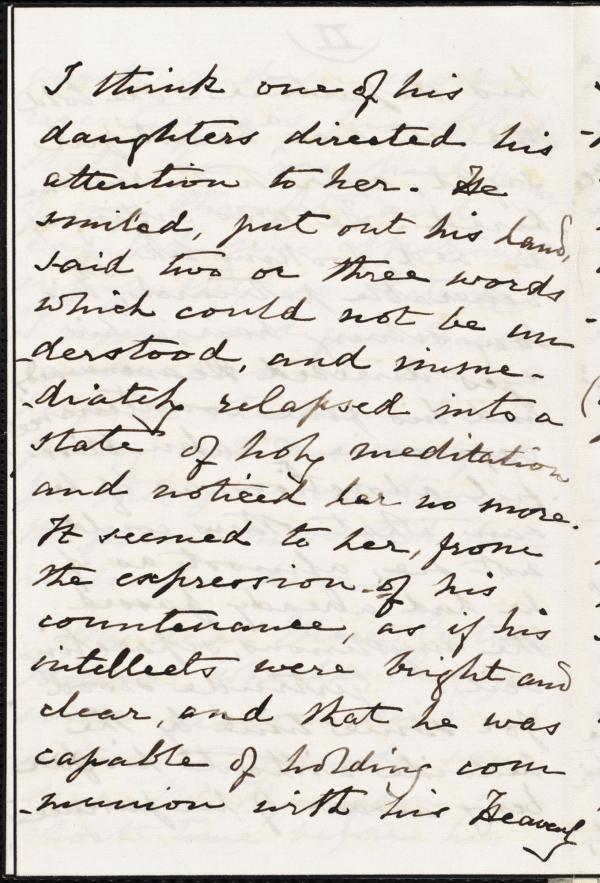 I think one of his
daughters directed his
attention to her. He
smiled, put out his hand,
said two or three words
which could not be un
-derstood, and imme-
-diately relapsed into a
state of holy meditation
and noticed her no more.
It seemed to her, from
the expression of his
countenance, as if his
intellects were bright and
clear, and that he was
capable of holding com
-munion with his Heavenly